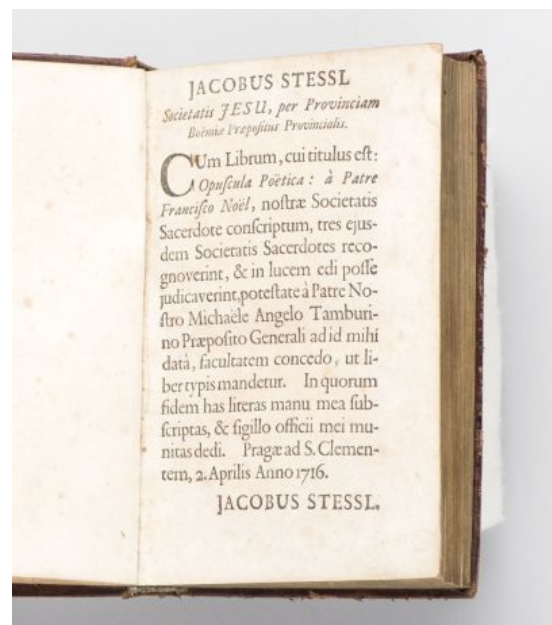 JACOBUS STESSL
Societatis JESU, per Provinciam
Boëmiæ Præpositus Provincialis.
CUm Librum, cui titulus eſt:
Opuſcula Poëtica: à Patre
Franciſco Noël, noſtræ Societatis
Sacerdote conſcriptum, tres ejus-
dem Societatis Sacerdotes reco-
gnoverint, & in lucem edi poſſe
judicaverint, poteſtate à Patre No-
ſtro Michaële Angelo Tamburi-
no Præpoſito Generali ad id mihi
datâ, facultatem concedo, ut li-
ber typis mandetur. In quorum
fidem has literas manu mea ſub-
ſcriptas, & ſigillo officii mei mu-
nitas dedi. Pragæ ad S. Clemen-
tem, 2. Aprilis Anno 1716.
JACOBUS STESSL.